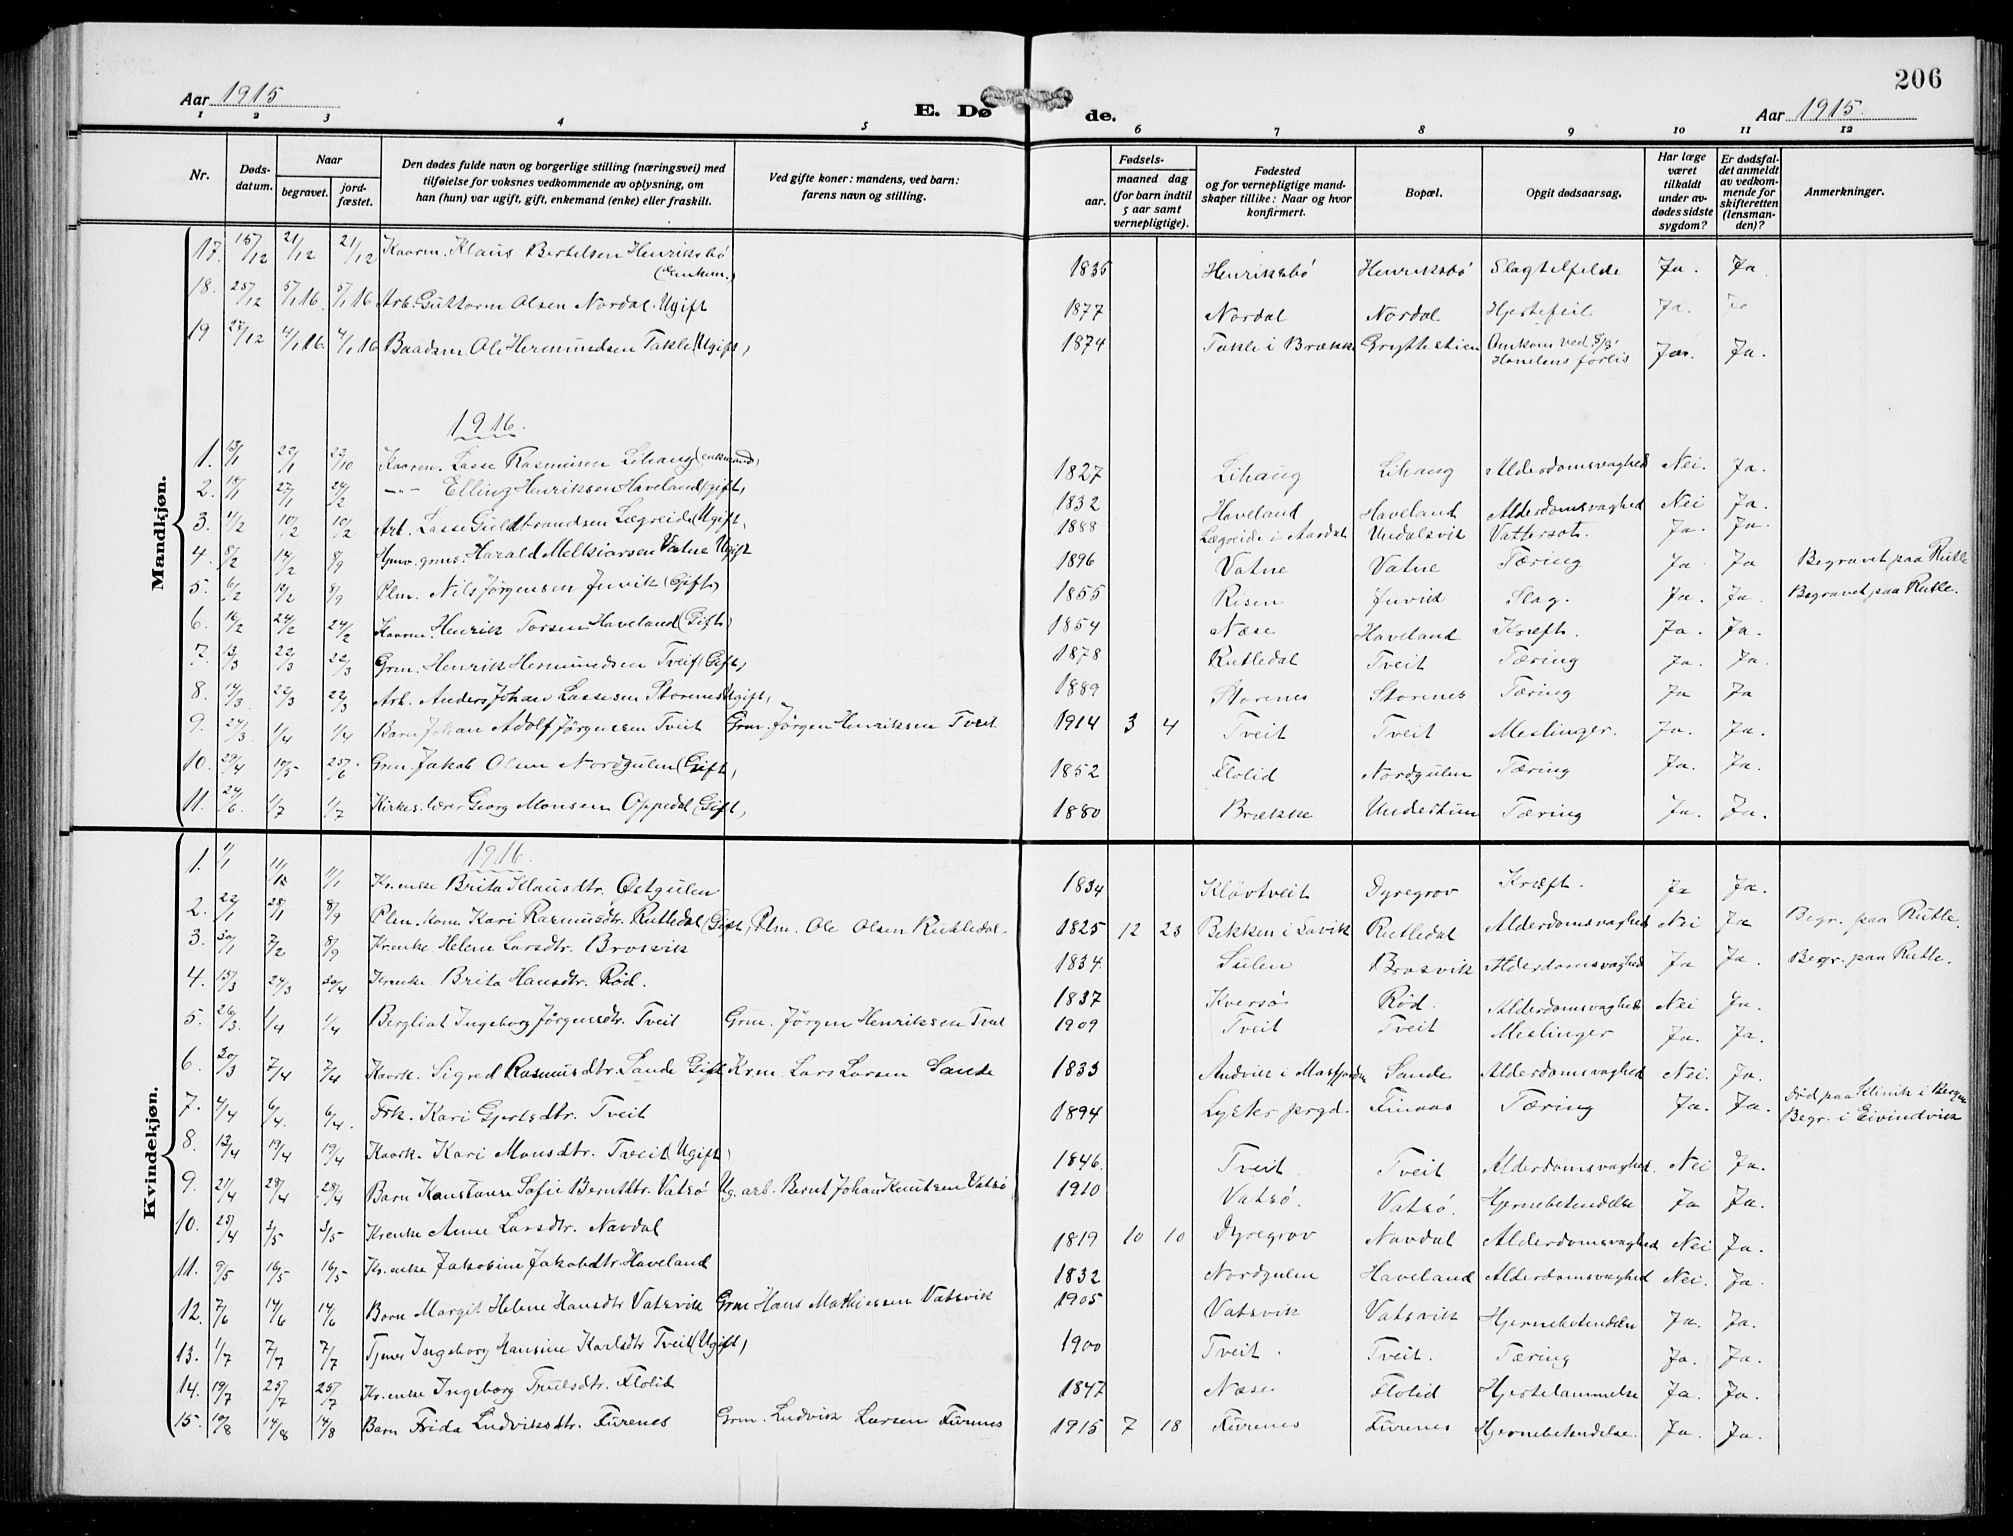 206
Aar 1915
E. Dø
de.
Aar 1915.
1 2 3 4 5 6 7 8 9 10 11 12
Nr.
Døds-
datum.
Naar
begravet.
jord-
fæstet.
Den dødes fulde navn og borgerlige stilling (næringsvei) med
tilføielse for voksnes vedkommende av oplysning, om
han (hun) var ugift, gift, enkemand (enke) eller fraskilt.
Ved gifte koner: mandens, ved barn:
farens navn og stilling.
Fødsels-
aar.
maaned dag
(for barn indtil
5 aar samt
vernepligtige).
Fødested
og for vernepligtige mand-
skaper tillike: Naar og hvor
konfirmert.
Bopæl.
Opgit dødsaarsag.
Har læge
været
tilkaldt
under av-
dødes sidste
sygdom?
Er dødsfal-
det anmeldt
av vedkom-
mende for
skifteretten
(lensman-
den)?
Anmerkninger.
Mandkjøn.
17. 15/12 21/12 21/12 Kaarm. Klaus Bertelsen Henriksbø (Enkem.) 1835 Henriksbø Henriksbø Slagtilfelde Ja. Ja.
18. 25/12 5/1 16 5/1 16 Arb. Guttorm Olsen Nordal. Ugift 1877 Nordal Nordal Hjertefeil Ja.
19 27/12 4/1 16. 4/1 16 Baadsm Ole Hermundsen Takle (Ugift) 1874 Takle i Brække Omkom ved S/S Ja.
forlis
1916.
1. 13/1 22/1 22/10 Kaarm. Lasse Rasmusen Lihaug (enkemand) 1827 Lihaug Lihaug Alderdomsvaghed Nei. Ja.
2. 27/1 24/2 —"— Elling Henriksen Haveland (gift) 1832 Haveland Haveland Alderdomsvaghed Nei Ja.
3. 4/2 10/2 10/2 Arb. Lasse Lægreid (Ugift) 1888 Lægreide i Aardal Undalsvik Vattersot. Ja. Ja.
4. 8/2 14/2 8/9 Harald Melkiorsen Vatne Ugift 1896 Vatne Vatne Tæring Ja Ja Begravet paa Rutle
5. 6/2 12/2 8/9 Plm. Nils Jørgensen Juvik (Gift) 1855 Risen Juvik Slag. Ja. Ja. Begravet paa Rutle.
6. 16/2 24/2 24/2 Kaarm. Henrik Torsen Haveland (Gift) 1854 Næse Haveland Kræft. Ja. Ja.
7. 13/3 22/3 22/3 Grm. Henrik Hermundsen Tveit (Gift) 1878 Rutledal Tveit Tæring Ja. Ja.
8. 14/3 22/3 22/3 Arb. Anders Johan Lassesen Storenes (Ugift) 1889 Storenes Storenes Tæring Ja Ja
9. 24/3 1/4 1/4 Barn Johan Adolf Jørgensen Tveit Grm. Jørgen Henriksen Tveit 1914 3 4 Tveit Tveit Meslinger. Ja. Ja.
10. 29/4 10/5 25/6 Grm. Jakob Olsen Nordgulen (Gift) 1852 Flolid Nordgulen Tæring Ja. Ja.
11. 24/6 1/7 1/7 Kirkes. lærer Georg Monsen Oppedal (Gift) 1880 Brække Undertun Tæring Ja. Ja.
Kvindekjøn.
1916.
1. 1/1 11/1 Kr.enke Brita Klausdtr. Østgulen 1834 Kløvtveit Dyregrov Kræft. Ja Ja.
2. 22/1 28/1 8/9 Plm. kone Kari Rasmusdtr. Rutledal (Gift) Plm. Ole Olsen Rutledal. 1825 12 23 Bekken i Lavik Rutledal Alderdomsvaghed Nei Ja Begr. paa Rutle.
3. 30/1 7/2 8/9 Kr.enke Helene Larsdtr. Brosvik 1834. Sulen Brosvik Alderdomsvaghed Ja Ja. Begr. paa Rutle.
4. 15/3 24/3 30/4 Kr.enke Brita Hansdtr. Rød. 1837 Kversø Rød. Alderdomsvaghed Nei Ja.
5. 26/3. 1/4 1/4 Bergliot Ingeborg Jørgensdtr. Tveit Grm. Jørgen Henriksen Tveit 1909 Tveit Tveit Meslinger Ja. Ja.
6. 30/3 7/4 7/4 Kaark. Sigred Rasmusdtr. Sande Gift Krm. Lars Larsen Sande 1833 Andvik i Masfjorden Sande Alderdomsvaghed Nei. Ja.
7. 4/4 6/4. 6/4. Frk. Kari Gjertsdtr. Tveit 1894 Lyster prgd. Finaas Tæring Ja. Ja. Død paa Klinik i Bergen
Begr. i Eivindvik
8. 13/4 19/4 19/4 Kaark. Kari Monsdtr. Tveit (Ugift) 1846. Tveit Tveit Alderdomsvaghed. Nei Ja.
9. 21/4 28/4 28/4 Barn Konstanse Sofie Berntdtr. Vatsø Ug. arb. Bernt Johan Knutsen Vatsø 1910 Vatsø. Vatsø. Hjernebetendelse Ja Ja.
10. 25/4 3/5 3/5 Kr.enke Anne Larsdtr. Navdal 1819 10 10 Dyregrov Navdal Alderdomsvaghed Nei Ja.
11. 9/5 16/5 16/5 Kr.enke Jakobine Jakobdtr. Haveland 1832 Nordgulen Haveland Alderdomsvaghed Nei. Ja.
12. 7/6 14/6 14/6 Barn Margit Helene Hansdtr Vatsvik Grm Hans Mathiessen Vatsvik 1905 Vatsvik Vatsvik Hjernebetendelse Ja. Ja.
13. 1/7 7/7 7/7 Tjener Ingeborg Hansine Karlsdtr Tveit (Ugift) 1900 Tveit. Tveit. Tæring Ja. Ja.
14. 19/7 25/7 25/7 Kr.enke Ingeborg Truelsdtr. Flolid 1847 Næse Flolid Hjertelammelse Ja. Ja.
15. 10/8 14/8 14/8 Barn Frida Ludviksdtr. Furenes Grm. Ludvik Larsen Furenes 1915 7 18 Furenes Furenes Hjernebetendelse. Ja. Ja.